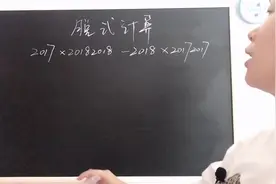 脱式计算
2017×20182018-2018×20172017